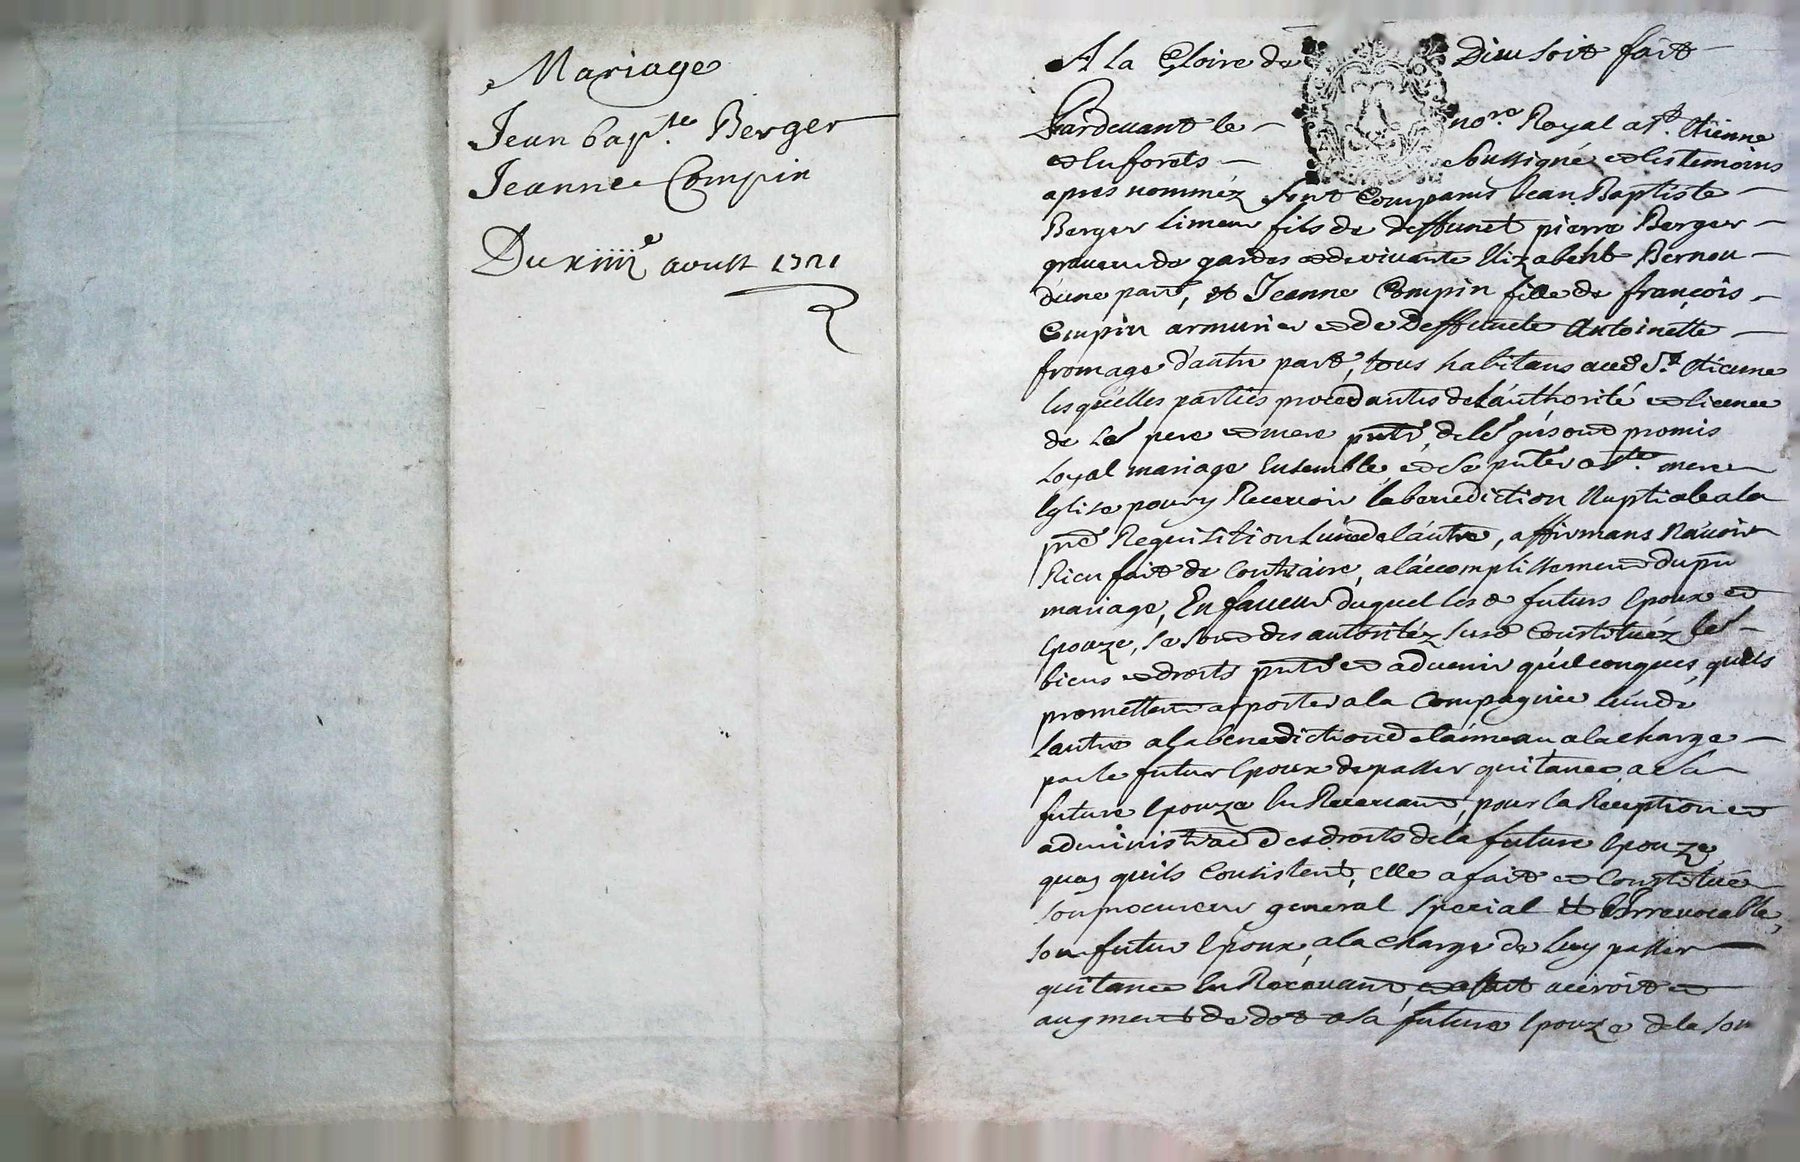 Mariage
Jean bap.te Berger
Jeanne Compin
Du xiiii.e aoust 1721
A la Gloire de Dieu soit fait
Pardevant le no.re Royal a S.t Etienne
en forets soussigné et les temoins
apres nomméz sont Comparus Jean Baptiste
Berger limeur fils de deffunct pierre Berger
graveur de gardes et de vivante Elizabeht Bernou
d'une part, et Jeanne Compin fille de françois
Compin armurier et de Deffuncte Antoinette
fromage d'autre part, tous habitans aud S.t Etienne
lesquelles parties procedantes de l'authorité et licence
de Les pere et mere pnts, de les qu'ils ont promis
Loyal mariage Ensemble, et de se pnter a S.te mere
Eglise pour y Recevoir la benediction Nuptiale a la
pre Requisition L'une de l'autre, affirmans N'avoir
Rien fait de Contraire, a l'accomplissement du pnt
mariage, En faveur duquel lesd futurs Epoux et
Epouze, se sont des autoritéz susd Constituéz les
biens et droits pnts et advenir quelconques, qu'ils
promettent apporter a la Compagnie L'un de
L'autre a la benediction de l'anneau, a la charge
par le futur Epoux de passer quitance a la
future Epouze En Recevant, pour la Reception et
administraon des droits de la future Epouze
quoy quils Consistent, elle a fait et Constitué
son procureur general special et Irrevocable,
son futur Epoux, a la charge de luy passer
quitance En Recevant, accroit et
augment de dot a la future Epouze de la som